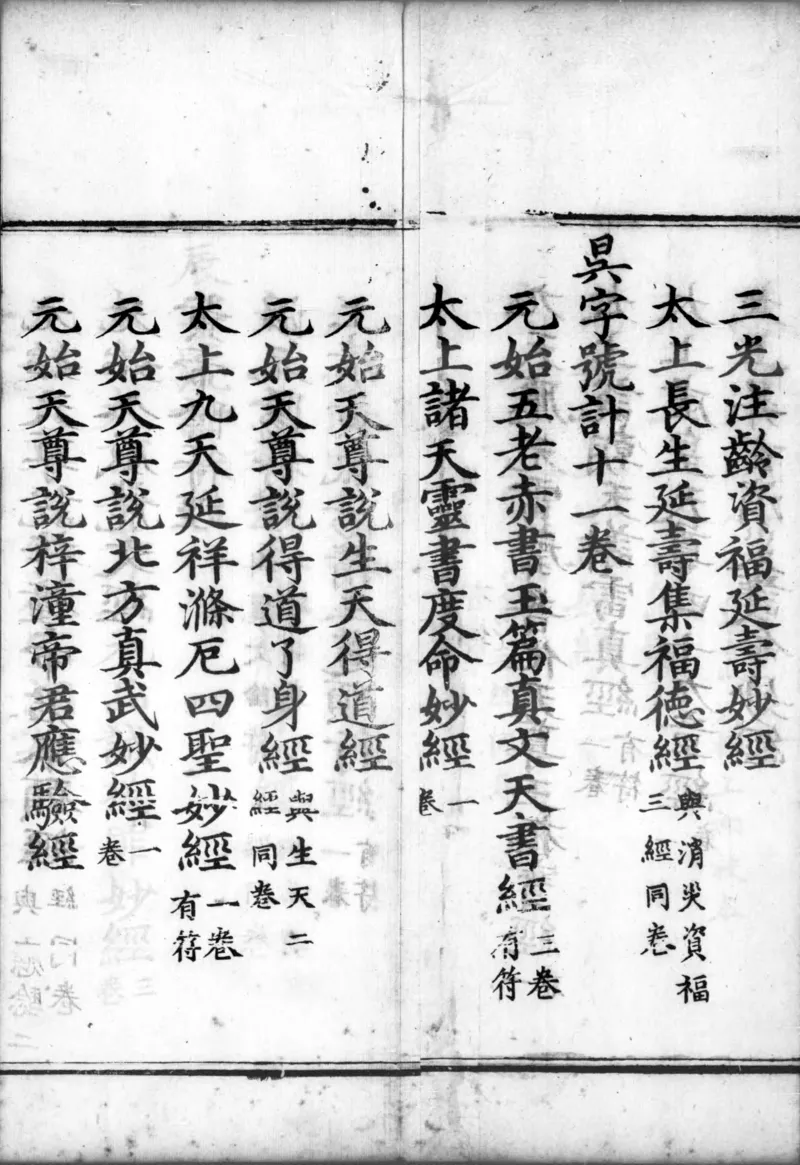 三光注齡資福延壽妙經
太上長生延壽集福德經 與消災資福三經同卷
昃字號計十一卷
元始五老赤書玉篇真文天書經 三卷有符
太上諸天靈書度命妙經 一卷
元始天尊說生天得道經
元始天尊說得道了身經 與生天二經同卷
太上九天延祥滌厄四聖妙經 一卷有符
元始天尊說北方真武妙經 一卷
元始天尊說梓潼帝君應驗經